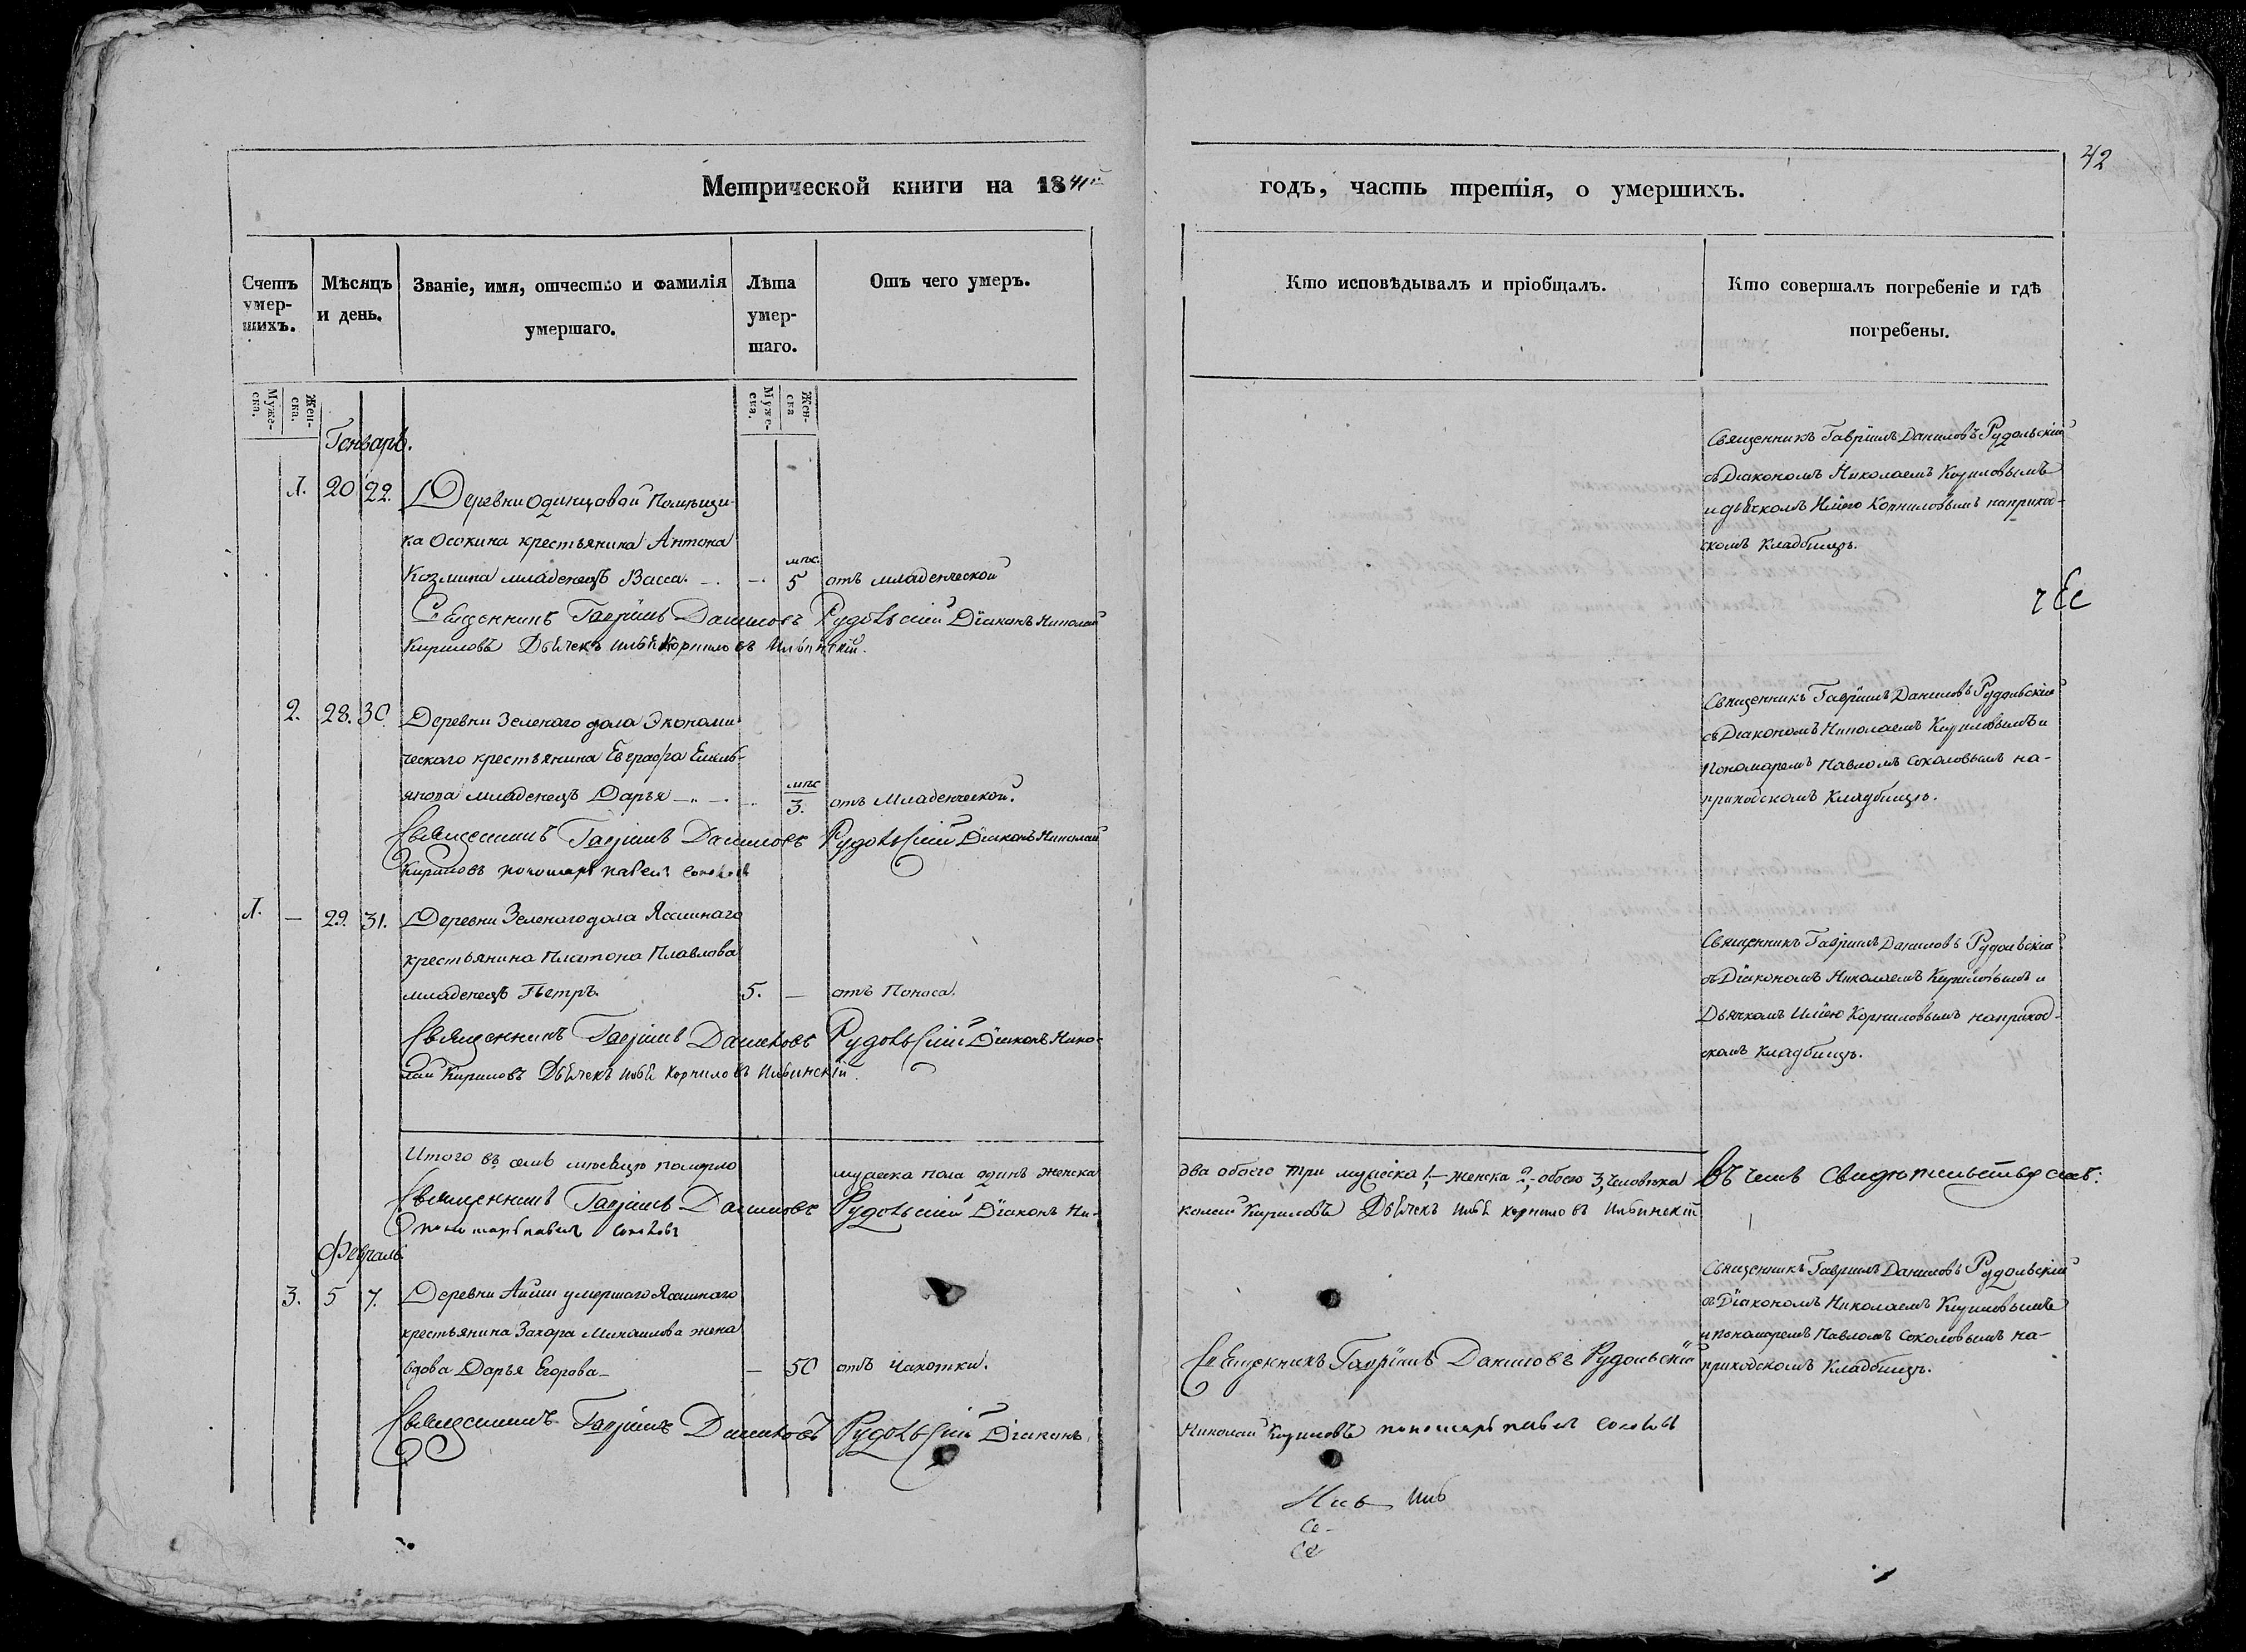 42
Метрической книги на 1841й
годъ, часть третія, о умершихъ.
Счетъ умер-
шихъ.
Мѣсяцъ
и день.
Званіе, имя, отчество и фамилія
умершаго.
Лѣта
умер-
шаго.
Отъ чего умеръ.
Кто исповѣдывалъ и пріобщалъ.
Кто совершалъ погребеніе и гдѣ
погребены.
Муже-
ска.
Жен-
ска.
Муже-
ска.
Жен-
ска
Генварь.
1. 20 22. Деревни Одинцовой Помѣщи-
ка Осокина крестьянина Антона
Козмина младенецъ Васса. — мѣс. 5 отъ младенческой
Священникъ Гавріилъ Даниловъ Рудольскій Діаконъ Николай
Кириловъ Дьячекъ Илья Корниловъ Ильинскій.
Священникъ Гавріилъ Даниловъ Рудольскій
съ Діакономъ Николаемъ Кириловымъ
и дьячкомъ Ильею Корниловымъ на приход-
скомъ кладбищѣ.
2. 28. 30. Деревни Зеленаго дола Экономи
ческаго крестьянина Евграфа Емель-
янова младенецъ Дарья — мѣс 3. отъ Младенческой.
Священникъ Гавріилъ Даниловъ Рудольскій Діаконъ Николай
Кириловъ пономарь павелъ соколовъ
Священникъ Гавріилъ Даниловъ Рудольскій
съ Діакономъ Николаемъ Кириловымъ и
Пономаремъ Павломъ Соколовымъ на-
приходскомъ кладбищѣ.
1. — 29. 31. Деревни Зеленаго дола Ясашнаго
крестьянина Платона Павлова
младенецъ Петръ. 5. — отъ Поноса.
Священникъ Гавріилъ Даниловъ Рудольскій Діаконъ Нико-
лай Кириловъ Дьячекъ Илья Корниловъ Ильинскій
Священникъ Гавріилъ Даниловъ Рудольскій
съ Діакономъ Николаемъ Кириловымъ и
Дьячкомъ Ильею Корниловымъ на приход-
скомъ кладбищѣ.
Итого въ семъ мѣсяцѣ померло мужеска пола одинъ женска два обоего три мужеска 1,— женска 2,- обоего 3, человѣка въ чемъ свидѣтельствуемъ:
Священникъ Гавріилъ Даниловъ Рудольскій Діаконъ Ни-
колай Кириловъ Дьячекъ Илья Корниловъ Ильинскій
пономарь павелъ соколовъ
Февраль
3. 5 7. Деревни Айши умершаго Ясашнаго
крестьянина Захара Михайлова жена
вдова Дарья Егорова — — 50 отъ чахотки.
Священникъ Гавріилъ Даниловъ Рудольскій
Священникъ Гавріилъ Даниловъ Рудольскій
съ Діакономъ Николаемъ Кириловымъ
и пономаремъ Павломъ Соколовымъ на-
приходскомъ кладбищѣ.
Священникъ Гавріилъ Даниловъ Рудольскій Діаконъ
Николай Кириловъ пономарь павелъ соколовъ